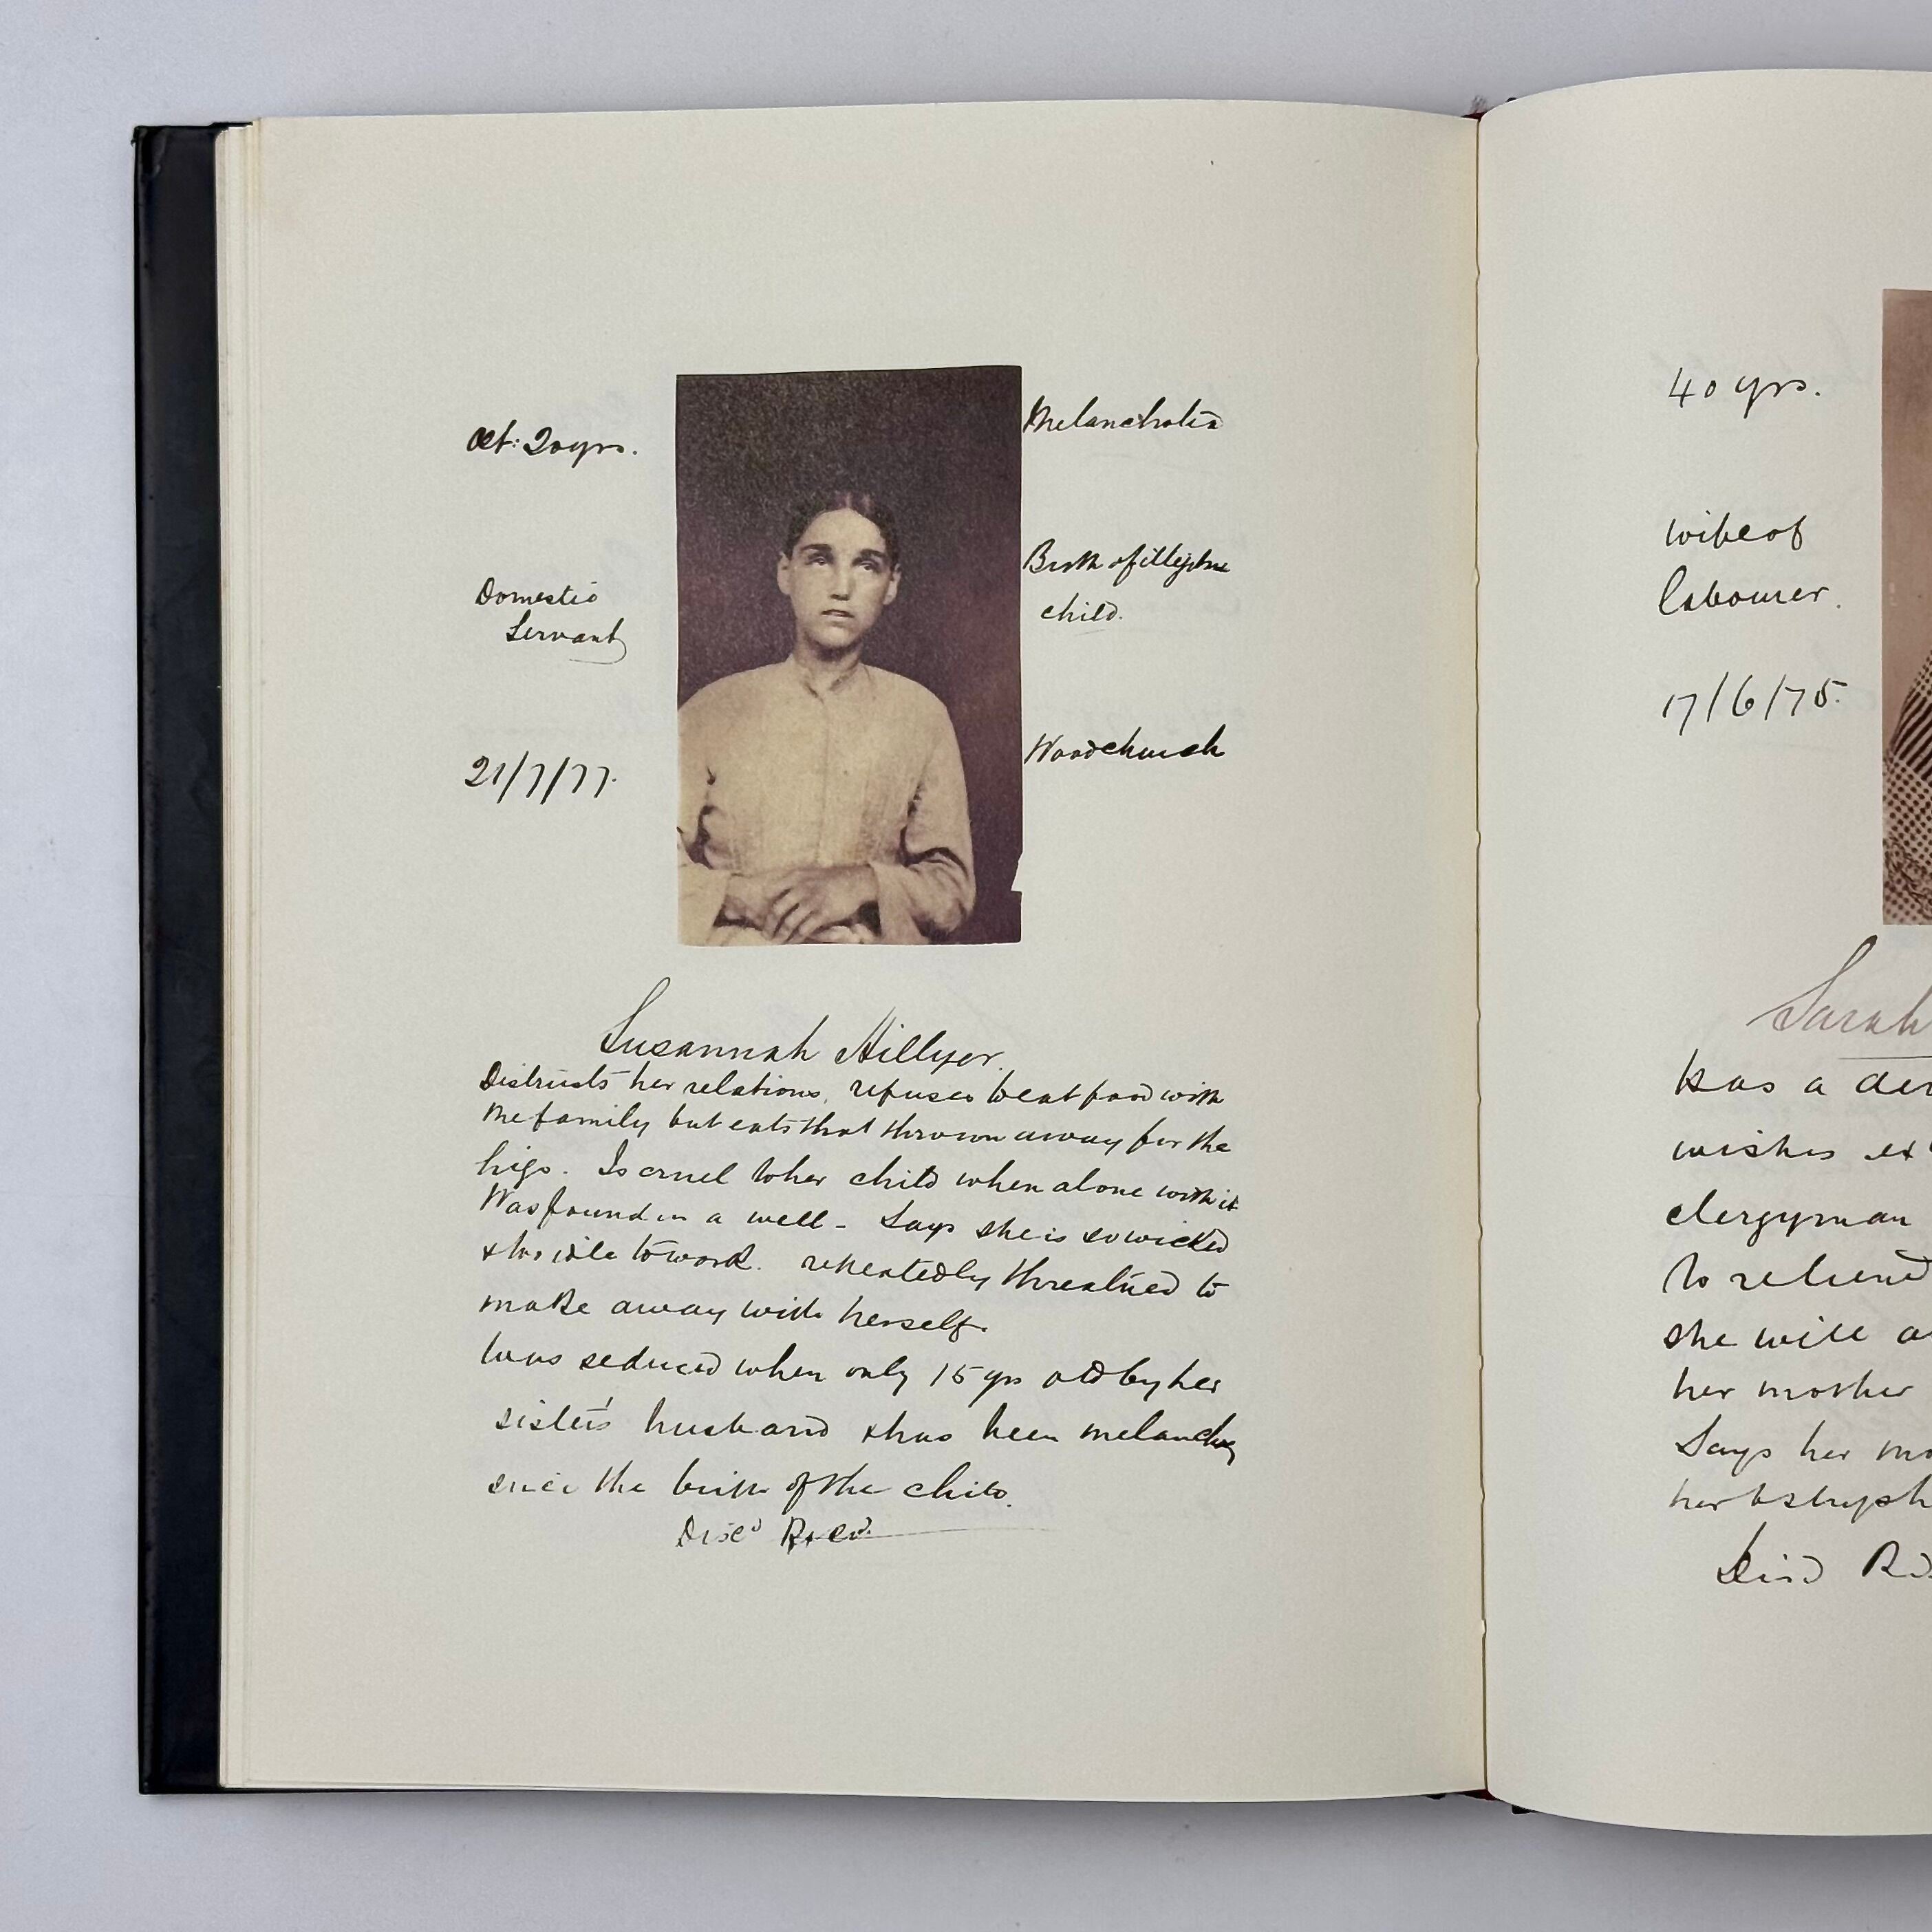 Aet: 20 yrs.
Domestic
Servant
21/7/77.
Melancholia
Birth of illegitime
child.
Woodchurch
Susannah Hillyer.
Distrusts her relations, refuses to eat food with
the family but eats that thrown away for the
pigs. Is cruel to her child when alone with it
Was found in a well - Says she is so wicked
& too idle to work. repeatedly threatned to
make away with herself.
Was seduced when only 15 yrs old by her
sister's husband & has been melancholy
since the birth of the child.
Disc'd Recd.
40 yrs.
wife of
labourer.
17/6/75.
Sarah
has a
wishes
clergyman
to
she will
her mother
Says her
her